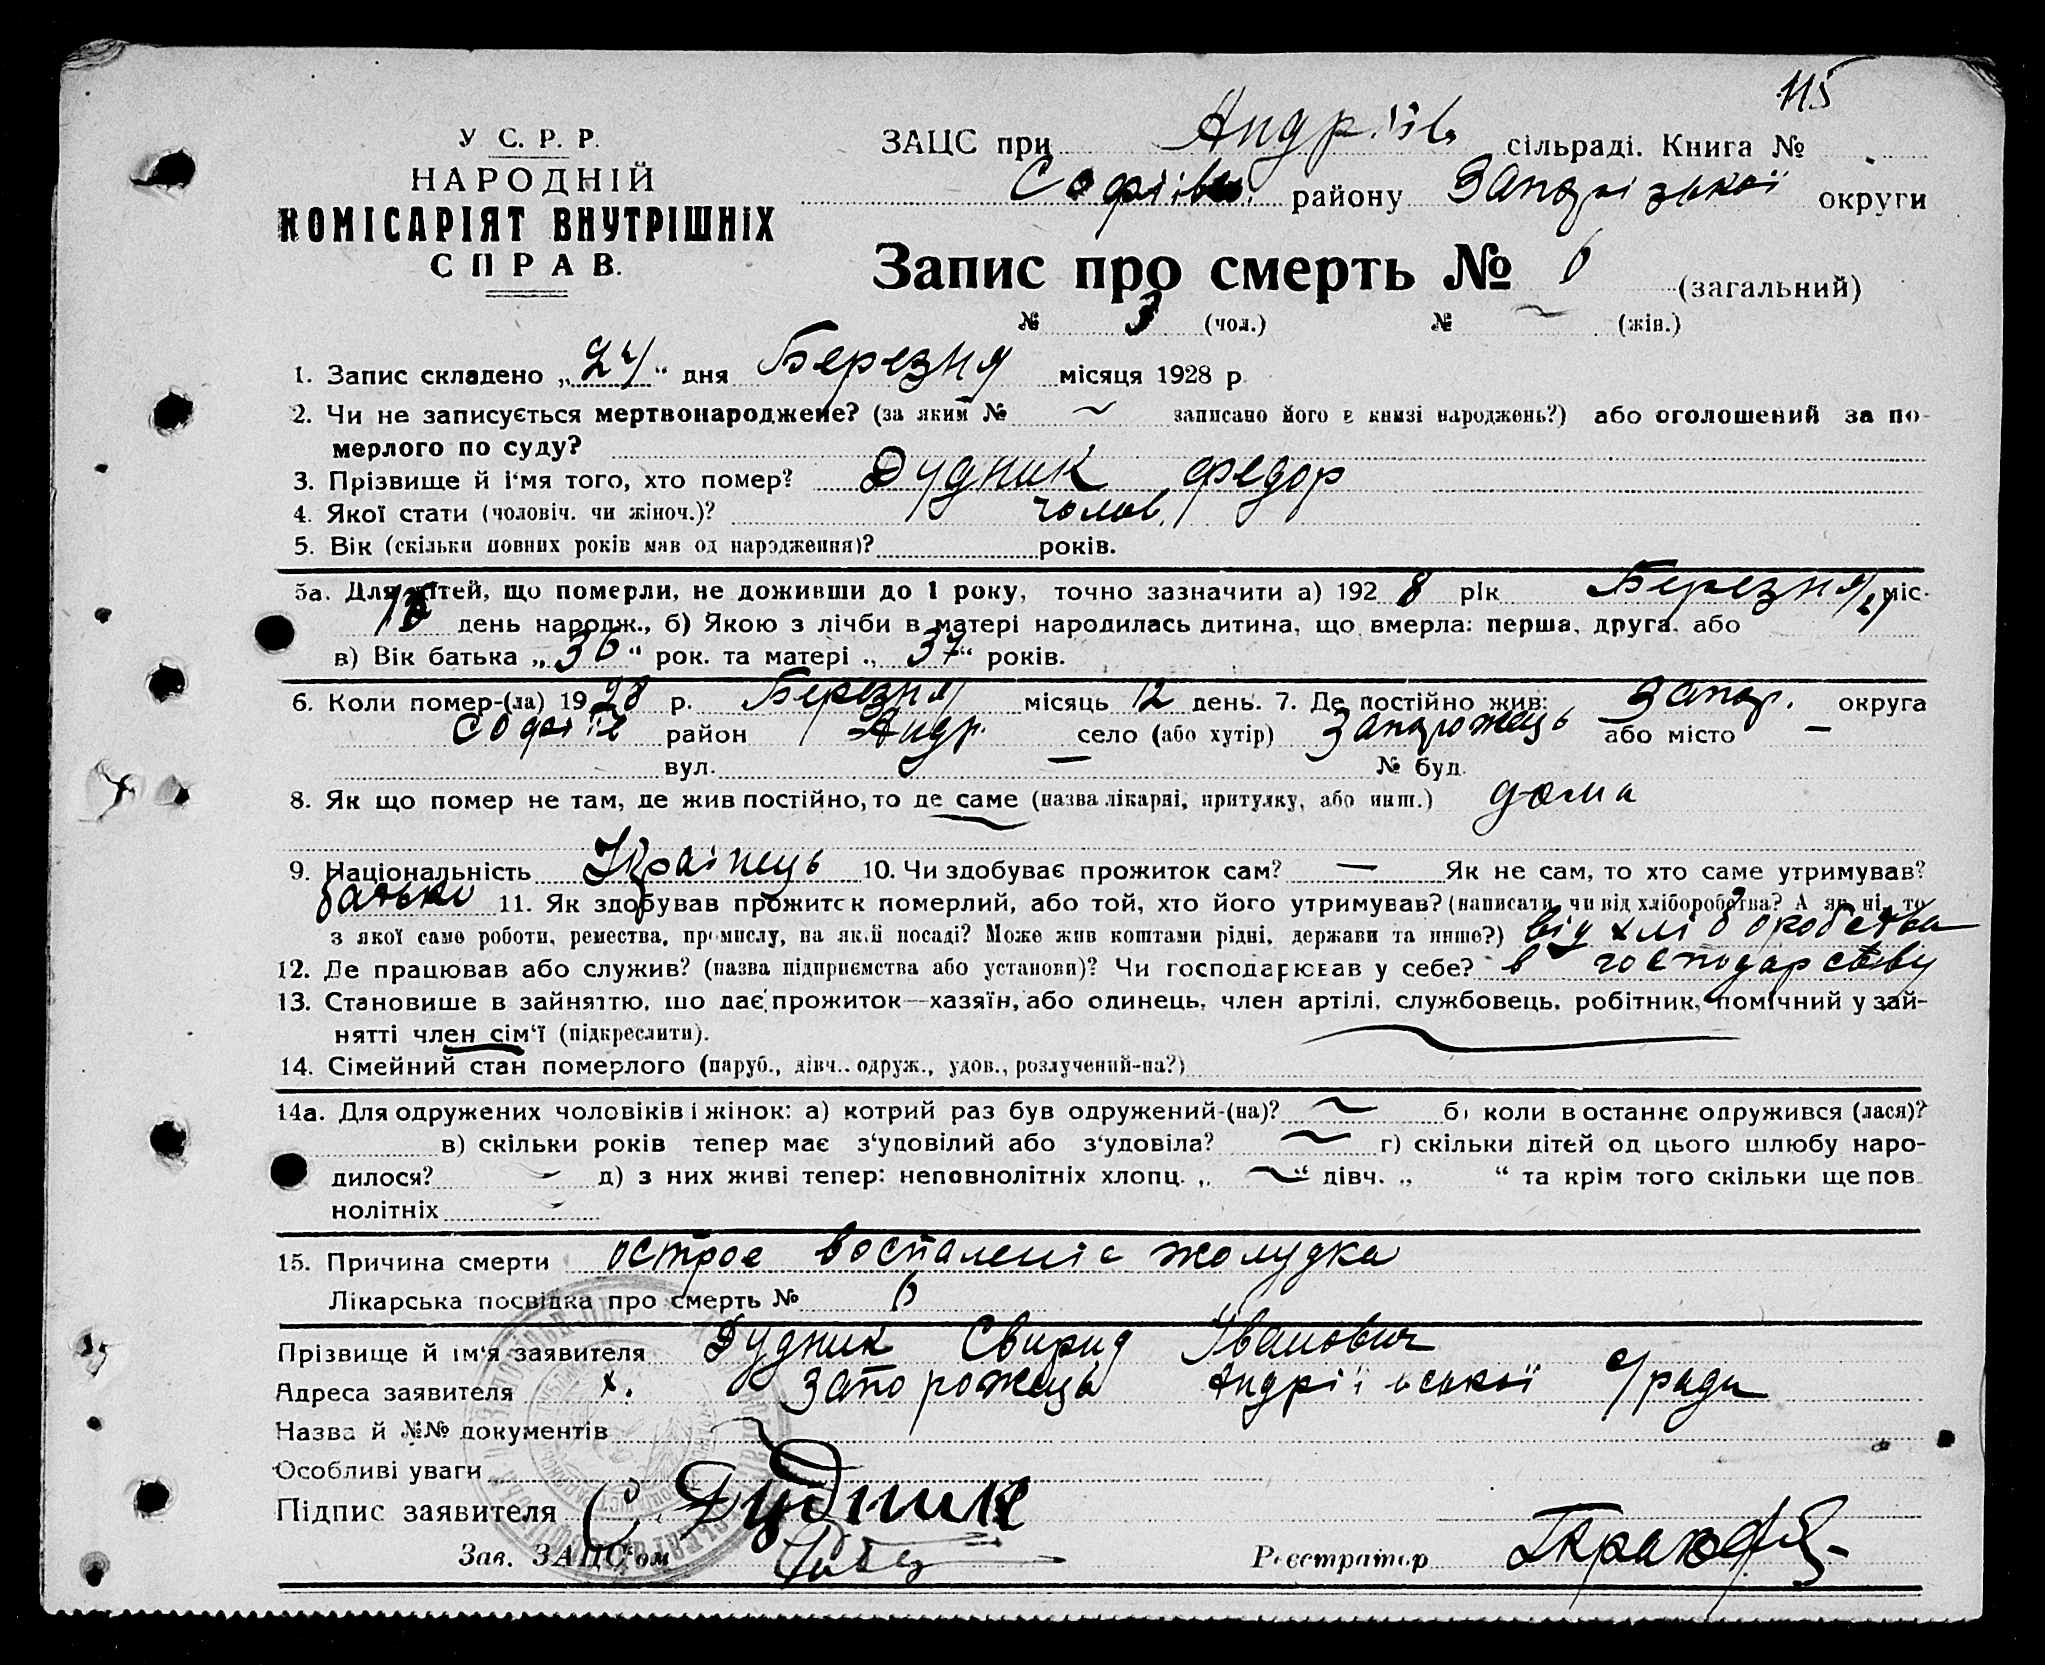 115
У С. Р. Р.
НАРОДНІЙ
КОМІСАРІЯТ ВНУТРІШНІХ
СПРАВ.
ЗАЦС при Андріїв сільраді. Книга №
Софіїв району Запорізької округи
Запис про смерть № 6 (загальний)
№ 3 (чол.) № ~ (жін.)
1. Запис складено „24“ дня Березня місяця 1928 р.
2. Чи не записується мертвонароджене? (за яким № ~ записано його в книзі народжень?) або оголошений за по-
мерлого по суду?
3. Прізвище й і'мя того, хто помер? Дудник Федор
4. Якої стати (чоловіч. чи жіноч.)? чолов.
5. Вік (скільки повних років мав од народження)? років.
5а. Для дітей, що померли, не доживши до 1 року, точно зазначити а) 1928 рік Березня міс.
день народж., б) Якою з лічби в матері народилась дитина, що вмерла: перша, друга, або
в) Вік батька „36“ рок. та матері „37“ років.
6. Коли помер-(ла) 1928 р. Березня місяць 12 день. 7. Де постійно жив: Запор. округа
Софіїв район Андр. село (або хутір) Запорожець або місто —
вул. — № буд.
8. Як що помер не там, де жив постійно, то де саме (назва лікарні, притулку, або инш.) дома
9. Національність Українець 10. Чи здобуває прожиток сам? — Як не сам, то хто саме утримував?
батько 11. Як здобував прожиток померлий, або той, хто його утримував? (написати, чи від хліборобства? А як ні, то
з якої саме роботи, ремества, промислу, на якій посаді? Може жив коштами рідні, держави та инше?) від хліборобства
12. Де працював або служив? (назва підприємства або установи)? Чи господарював у себе? в господарству
13. Становище в зайняттю, що дає прожиток—хазяїн, або одинець, член артілі, службовець, робітник, помічний у зай-
нятті член сім'ї (підкреслити).
14. Сімейний стан померлого (паруб., дівч., одруж., удов., розлучений-на?)
14а. Для одружених чоловіків і жінок: а) котрий раз був одружений-(на)? ~ б) коли в останнє одружився (лася)?
в) скільки років тепер має з'удовілий або з'удовіла? ~ г) скільки дітей од цього шлюбу наро-
дилося? ~ д) з них живі тепер: неповнолітніх хлопц. „ ~ “ дівч. „ “ та крім того скільки ще пов-
нолітніх ~
15. Причина смерти острое воспаленіе жолудка
Лікарська посвідка про смерть № 6
Прізвище й ім'я заявителя Дудник Свирид Іванович
Адреса заявителя х. Запорожець Андріївської с/ради
Назва й №№ документів ~
Особливі уваги
Підпис заявителя С. Дудник
Зав. ЗАЦС'ом Реєстратор